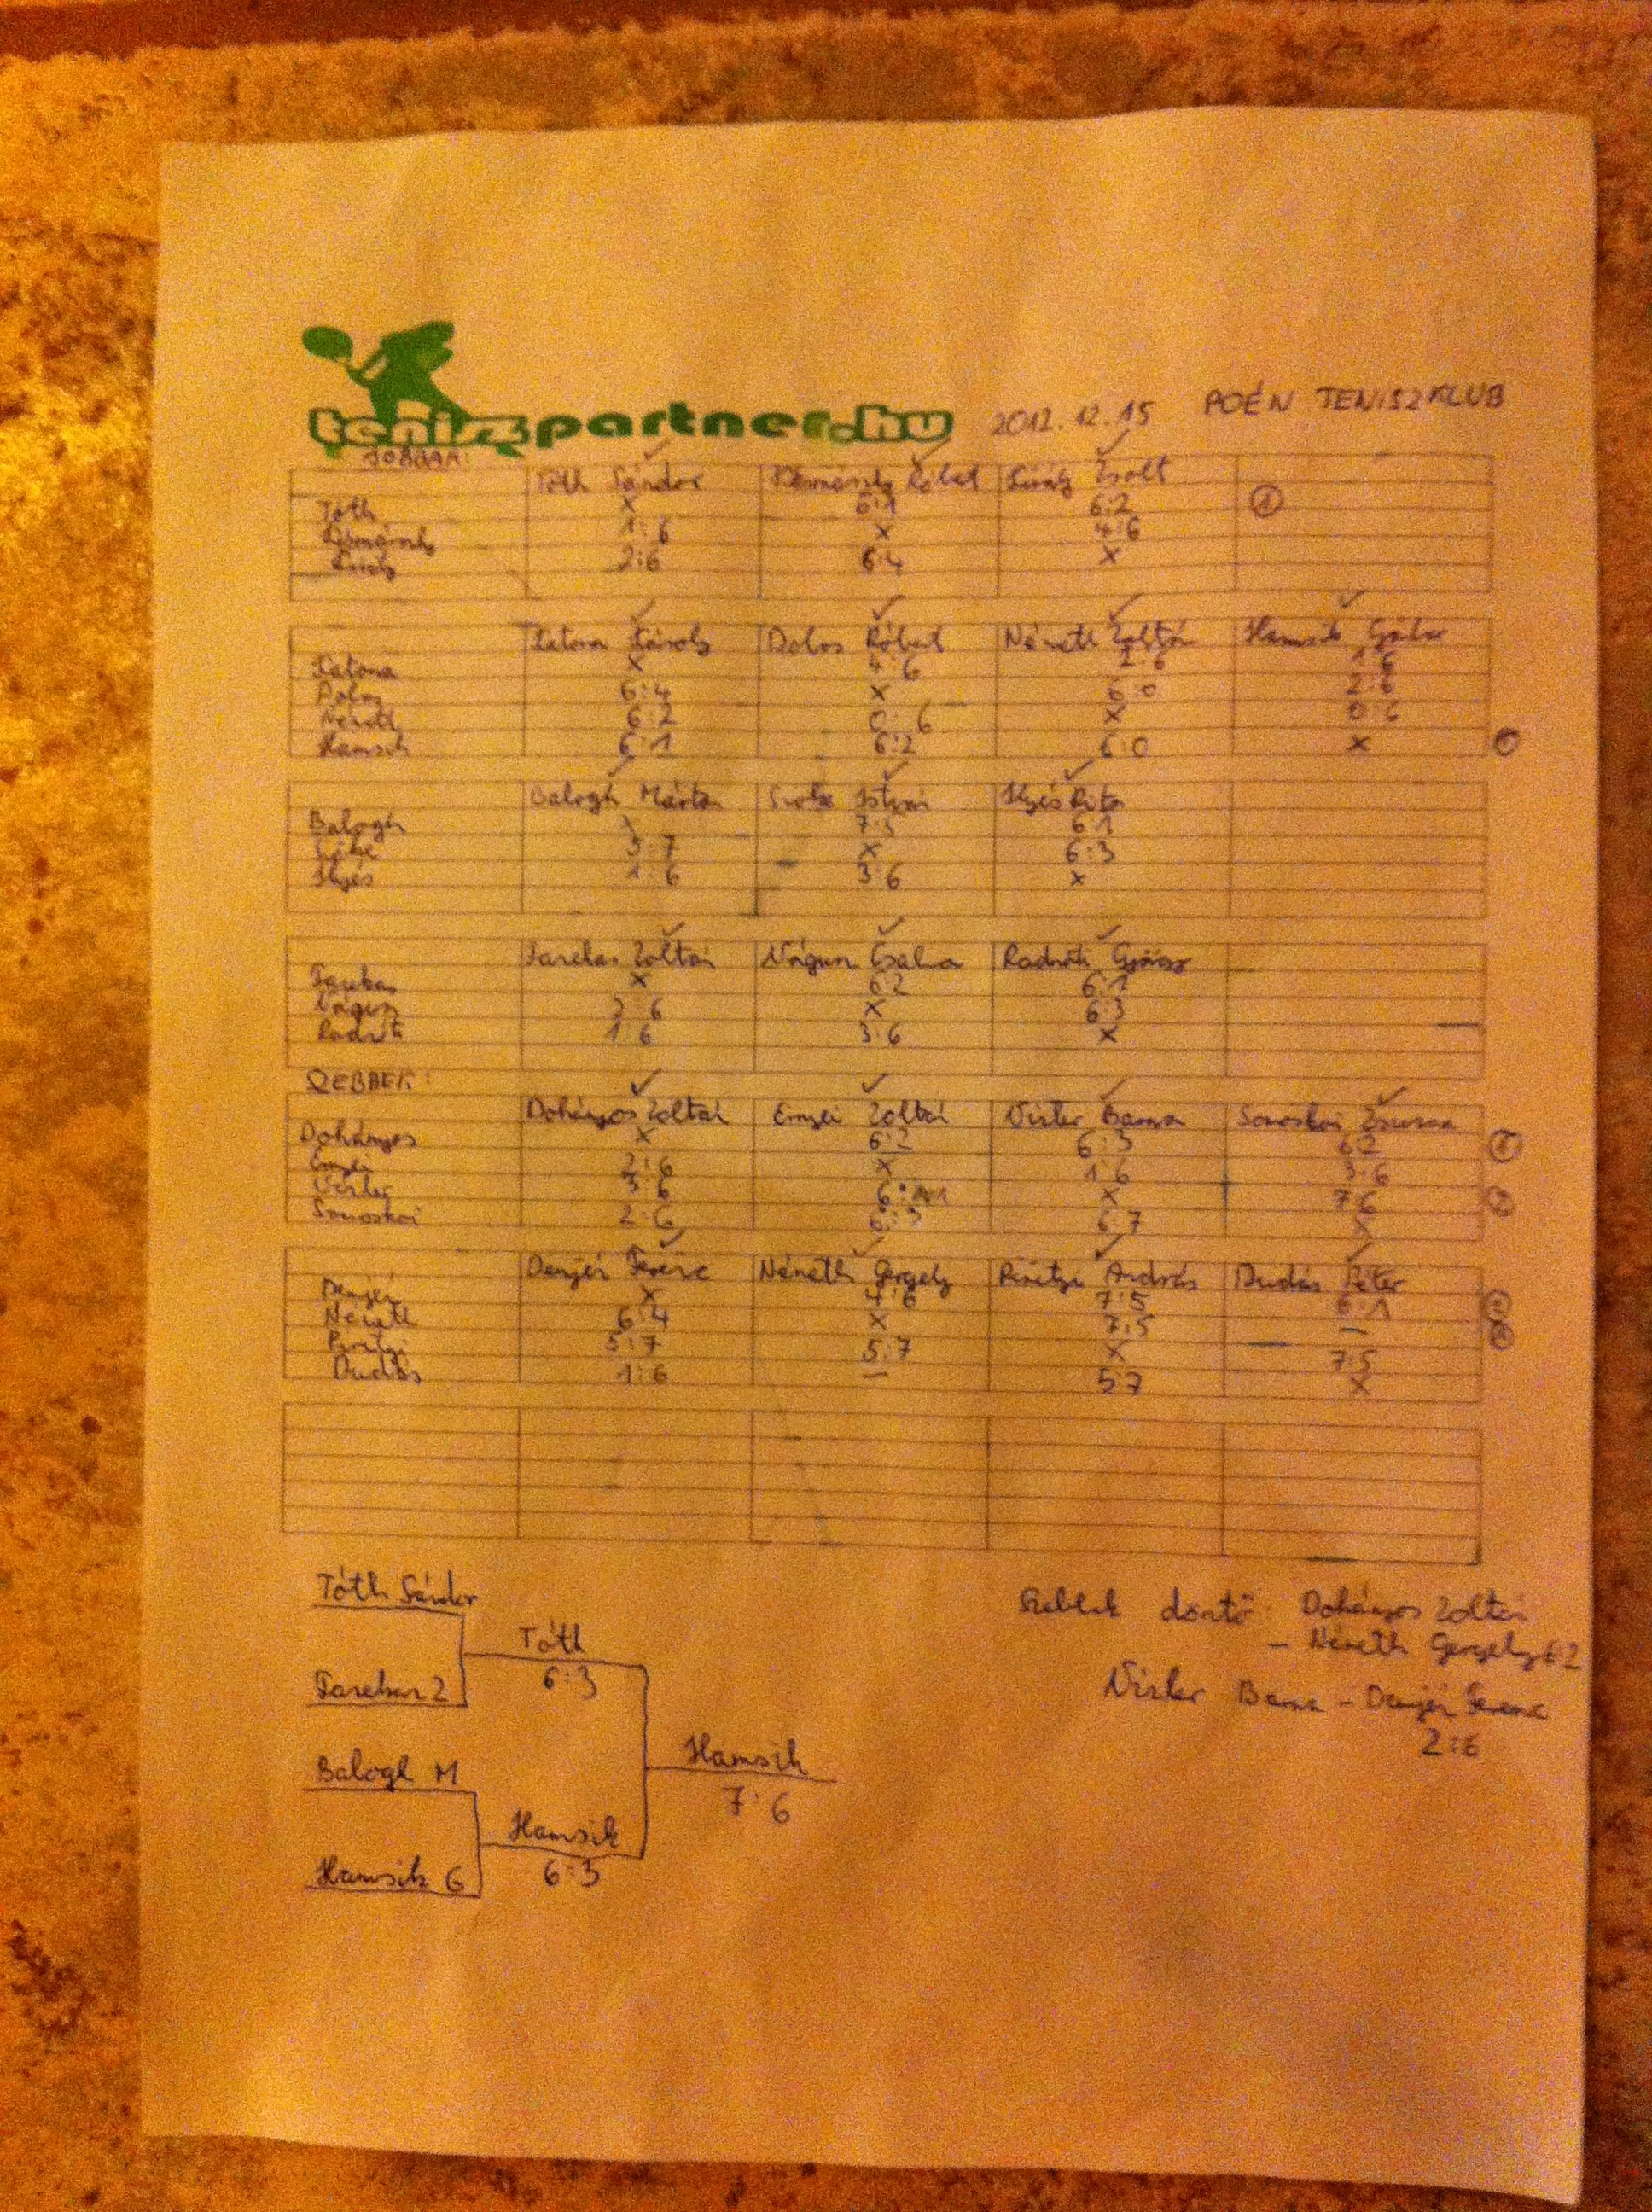 teniszpartner.hu 2012.12.15 POÉN TENISZKLUB
JOBBAK:
Tóth Sándor Róbert Király Zsolt
Tóth x 6:1 6:2 1
1:6 x 4:6
Király 2:6 6:4 x
Katona Károly Dobos Róbert Németh Zoltán Hamsik Gábor
Katona x 4:6 2:6 1:6
Dobos 6:4 x 6:0 2:6
Németh 6:2 0:6 x 0:6
Hamsik 6:1 6:2 6:0 x 1
Balogh Márton István Illyés Rita
Balogh x 7:5 6:1
5:7 x 6:3
Illyés 1:6 3:6 x
Farkas Zoltán Csaba Radnóti György
Farkas x 6:2 6:1
2:6 x 6:3
Radnóti 1:6 3:6 x
Dohányos Zoltán Enyei Zoltán Barna Zsuzsa
Dohányos x 6:2 6:3 6:2 1
Enyei 2:6 x 1:6 3:6
3:6 6:1 x 7:6 2
2:6 6:3 6:7 x
Demjén Ferenc Németh Gergely András Dudás Péter
Demjén x 4:6 7:5 6:1 2
Németh 6:4 x 7:5 –
5:7 5:7 x 7:5
Dudás 1:6 – 5:7 x
Tóth Sándor
Tóth
6:3
Farkas Z
Balogh M
Hamsik
7:6
Hamsik
6:3
Hamsik G
döntő: Dohányos Zoltán
– Németh Gergely 6:2
Barna – Demjén Ferenc
2:6